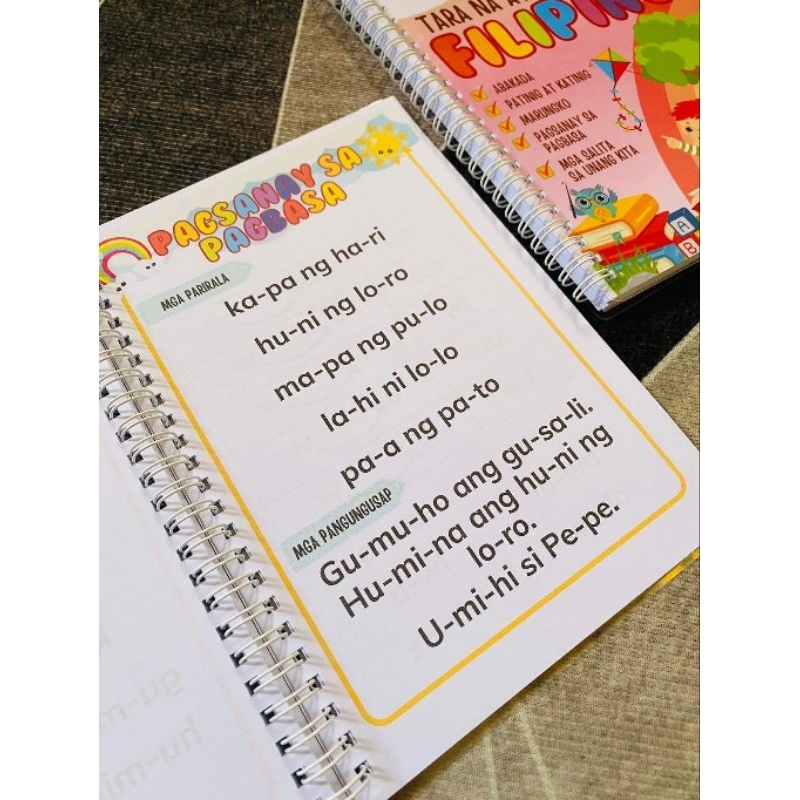 TARA NA
FILIPINO
ABAKADA
PATINIG AT KATINIG
MARUNGKO
PAGSANAY SA
PAGBASA
MGA SALITA
SA UNANG KITA
A
B
PAGSANAY SA
PAGBASA
MGA PARIRALA
ka-pa ng ha-ri
hu-ni ng lo-ro
ma-pa ng pu-lo
la-hi ni lo-lo
pa-a ng pa-to
MGA PANGUNGUSAP
Gu-mu-ho ang gu-sa-li.
Hu-mi-na ang hu-ni ng
lo-ro.
U-mi-hi si Pe-pe.